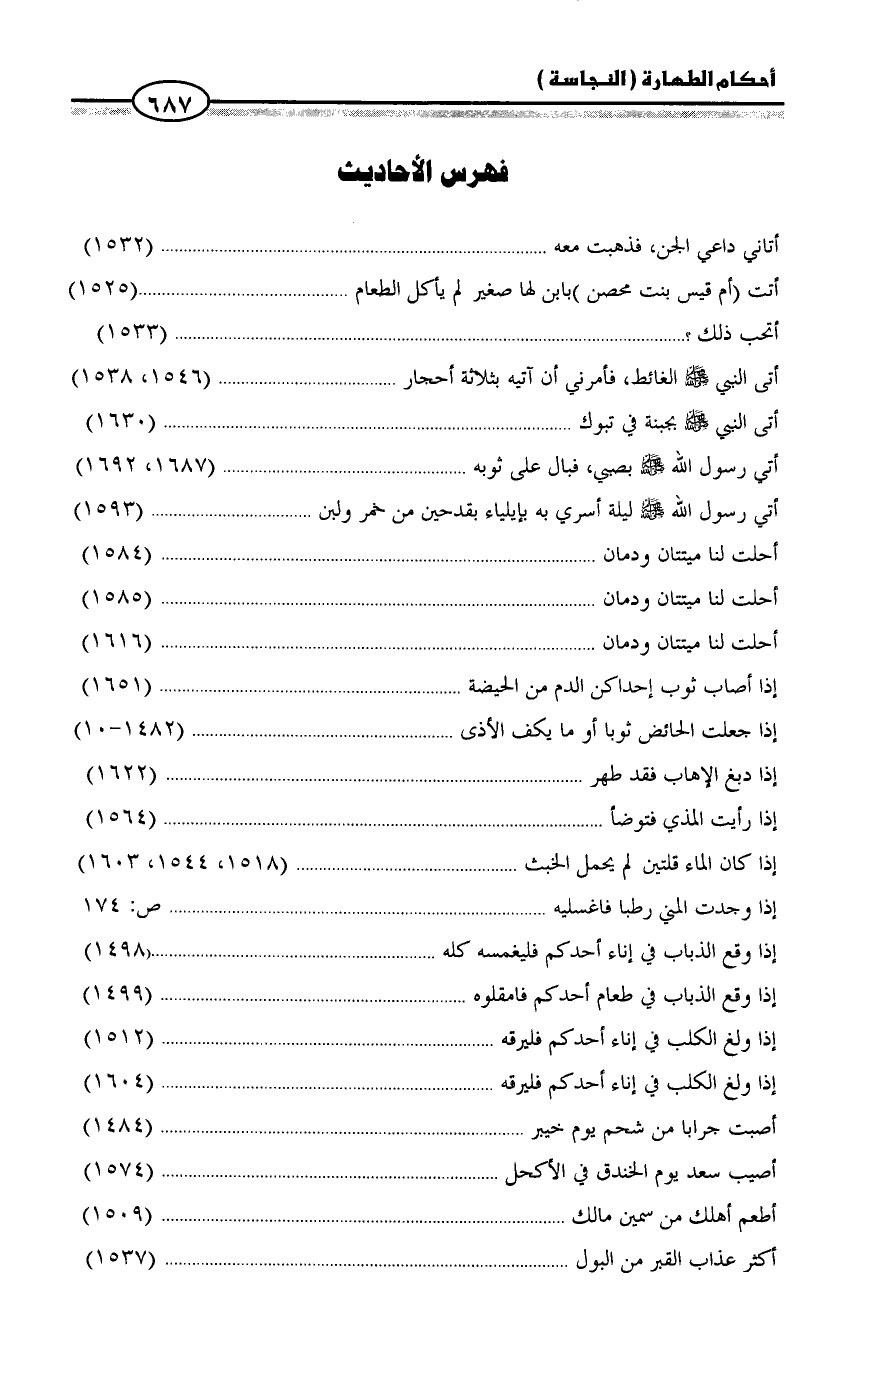 أحكام الطهارة (النجاسة)
٦٨٧
فهرس الأحاديث
أتاني داعي الجن، فذهبت معه ........ (١٥٣٢)
أتت (أم قيس بنت محصن )بابن لها صغير لم يأكل الطعام ........(١٥٢٥)
أتحب ذلك ؟........ (١٥٣٣)
أتى النبي ﷺ الغائط، فأمرني أن آتيه بثلاثة أحجار ........ (١٥٤٦، ١٥٣٨)
أتى النبي ﷺ بجبنة في تبوك ........ (١٦٣٠)
أتي رسول الله ﷺ بصبي، فبال على ثوبه ........ (١٦٨٧، ١٦٩٢)
أتي رسول الله ﷺ ليلة أسري به بإيلياء بقدحين من خمر ولبن ........ (١٥٩٣)
أحلت لنا ميتتان ودمان ........ (١٥٨٤)
أحلت لنا ميتتان ودمان ........ (١٥٨٥)
أحلت لنا ميتتان ودمان ........ (١٦١٦)
إذا أصاب ثوب إحداكن الدم من الحيضة ........ (١٦٥١)
إذا جعلت الحائض ثوبا أو ما يكف الأذى ........ (١٤٨٢-١٠)
إذا دبغ الإهاب فقد طهر ........ (١٦٢٢)
إذا رأيت المذي فتوضأ ........ (١٥٦٤)
إذا كان الماء قلتين لم يحمل الخبث ........ (١٥١٨، ١٥٤٤، ١٦٠٣)
إذا وجدت المني رطبا فاغسليه ........ ص: ١٧٤
إذا وقع الذباب في إناء أحدكم فليغمسه كله ........(١٤٩٨)
إذا وقع الذباب في طعام أحدكم فامقلوه ........ (١٤٩٩)
إذا ولغ الكلب في إناء أحدكم فليرقه ........ (١٥١٢)
إذا ولغ الكلب في إناء أحدكم فليرقه ........ (١٦٠٤)
أصبت جرابا من شحم يوم خيبر ........ (١٤٨٤)
أصيب سعد يوم الخندق في الأكحل ........ (١٥٧٤)
أطعم أهلك من سمين مالك ........ (١٥٠٩)
أكثر عذاب القبر من البول ........ (١٥٣٧)